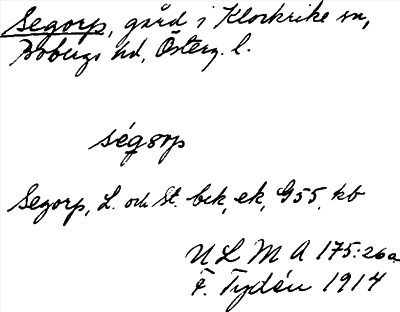 Segorp, gård i Klockrike sn,
Bobergs hd, Österg. l.
ségorp
Segorp, L. och St. bek, ek, G55, kb
ULMA 175:26a
F. Tydén 1914